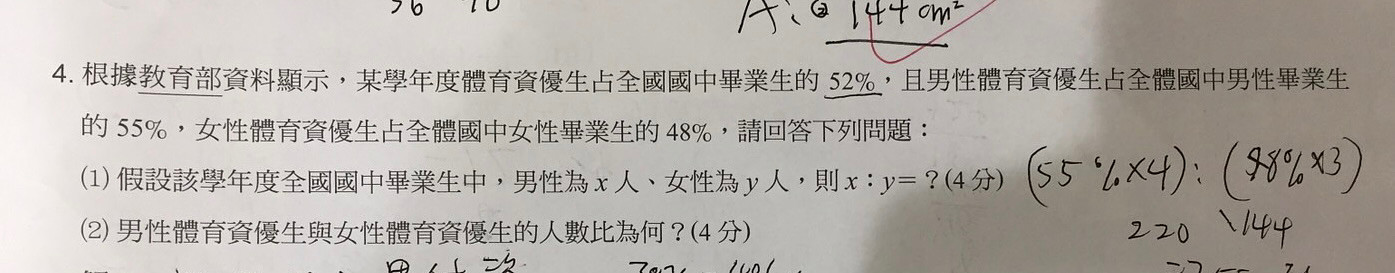 36 70
A：② 144 cm²
4. 根據教育部資料顯示，某學年度體育資優生占全國國中畢業生的 52%，且男性體育資優生占全體國中男性畢業生
的 55%，女性體育資優生占全體國中女性畢業生的 48%，請回答下列問題：
(1) 假設該學年度全國國中畢業生中，男性為 x 人、女性為 y 人，則 x：y=？(4 分) (55%×4)：(48%×3)
(2) 男性體育資優生與女性體育資優生的人數比為何？(4 分) 220 144